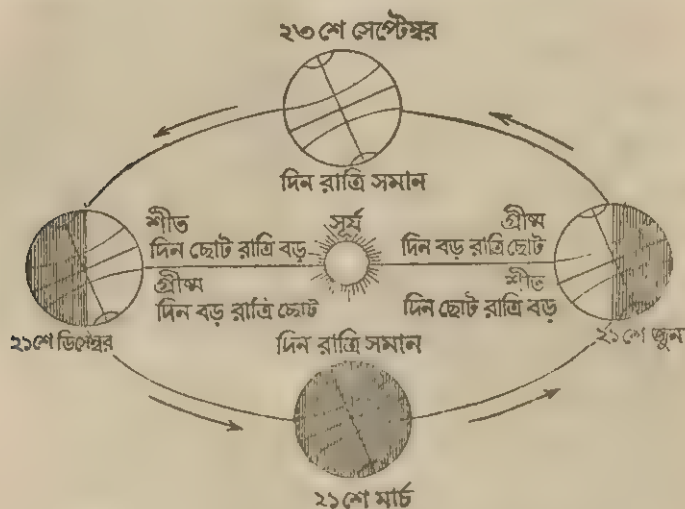 ২৩ শে সেপ্টেম্বর
দিন রাত্রি সমান
শীত
দিন ছোট রাত্রি বড়
গ্রীষ্ম
দিন বড় রাত্রি ছোট
সূর্য
গ্রীষ্ম
দিন বড় রাত্রি ছোট
শীত
দিন ছোট রাত্রি বড়
২১শে ডিসেম্বর
২১শে জুন
দিন রাত্রি সমান
২১শে মার্চ